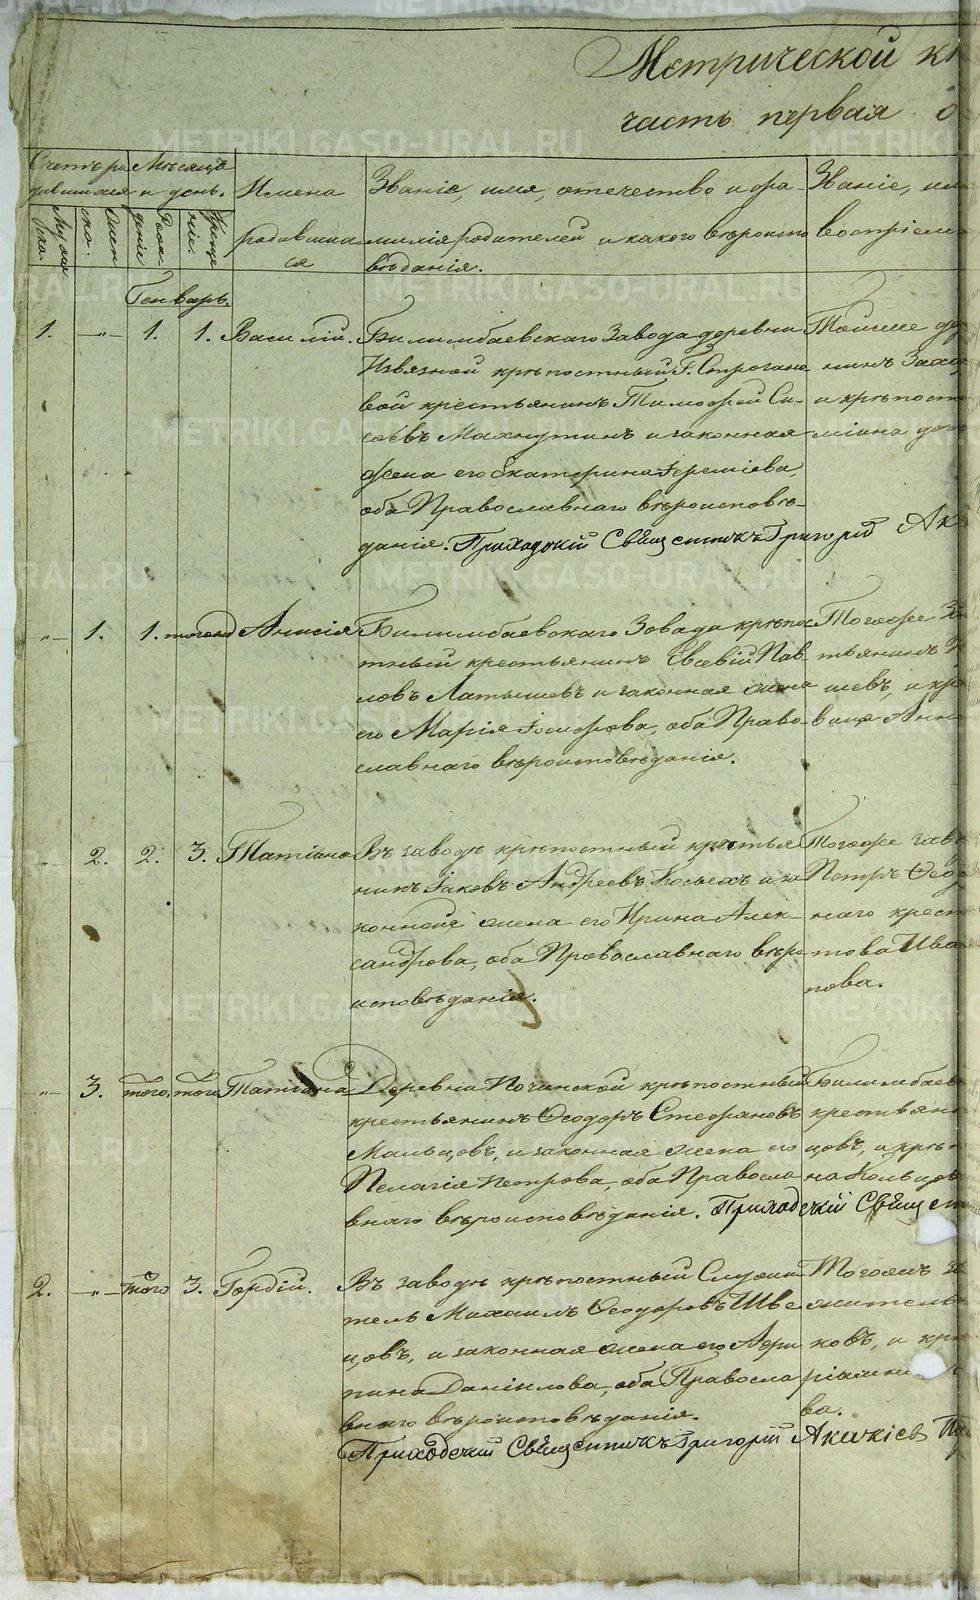 Метрической кн
часть первая о
Счетъ ро
дившихся
Мѣсяцъ
и день.
Имена
родивших
ся
Званіе, имя, отечество и фа-
милія родителей и какого вѣроиспо
вѣданія.
Званіе, им
воспріем
Муже
ска.
Женс
ска.
Рож
деніе
Креще
ніе.
Генварь.
1. —"— 1. 1. Василій.
Билимбаевскаго Завода деревни
Извязной крѣпостный Г. Строгано
вой крестьянинъ Тимофей Сы-
соевъ Махнутинъ и законная
жена его Екатерина Іереміева,
оба Православнаго вѣроисповѣ-
данія. Приходскій Священникъ Григорій Ак
Тойже де
нинъ Заха
и крѣпост
міана доч
"— 1. 1. тогожъ Анисія
Билимбаевскаго Завода крѣпос
тный крестьянинъ Евсевій Пав-
ловъ Латышевъ и законная жена
его Марія Іосифова, оба Право-
славнаго вѣроисповѣданія.
Тогоже За
тьянинъ
шевъ, и кр
вица Анн
" 2. 2. 3. Татіана
Въ заводѣ крѣпостный крестья
нинъ Іаковъ Андреевъ Косыхъ и за
конная жена его Ирина Алек-
сандрова, оба Православнаго вѣро
исповѣданія.
Тогоже зав
Петръ Ѳеод
наго крест
това Ива
нова.
"— 3. того. того Татіана
Деревни Починской крѣпостный
крестьянинъ Ѳеодоръ Стефановъ
Мальцовъ, и законная жена его
Пелагія Петрова, оба Правосла
внаго вѣроисповѣданія. Приходскій Священ
Билимбаев
крестьян
цовъ, и крѣ
на Кольцов
2. —"— того 3. Гордій.
Въ заводѣ крѣпостный Служи
тель Михаилъ Ѳеодоровъ Шве
цовъ, и законная жена его Агри
пина Даніилова, оба Правосла
внаго вѣроисповѣданія.
Тогожъ за
житель
ковъ, и кр
ва.
Приходскій Священникъ Григорій Акакіев
METRIKI.GASO-URAL.RU